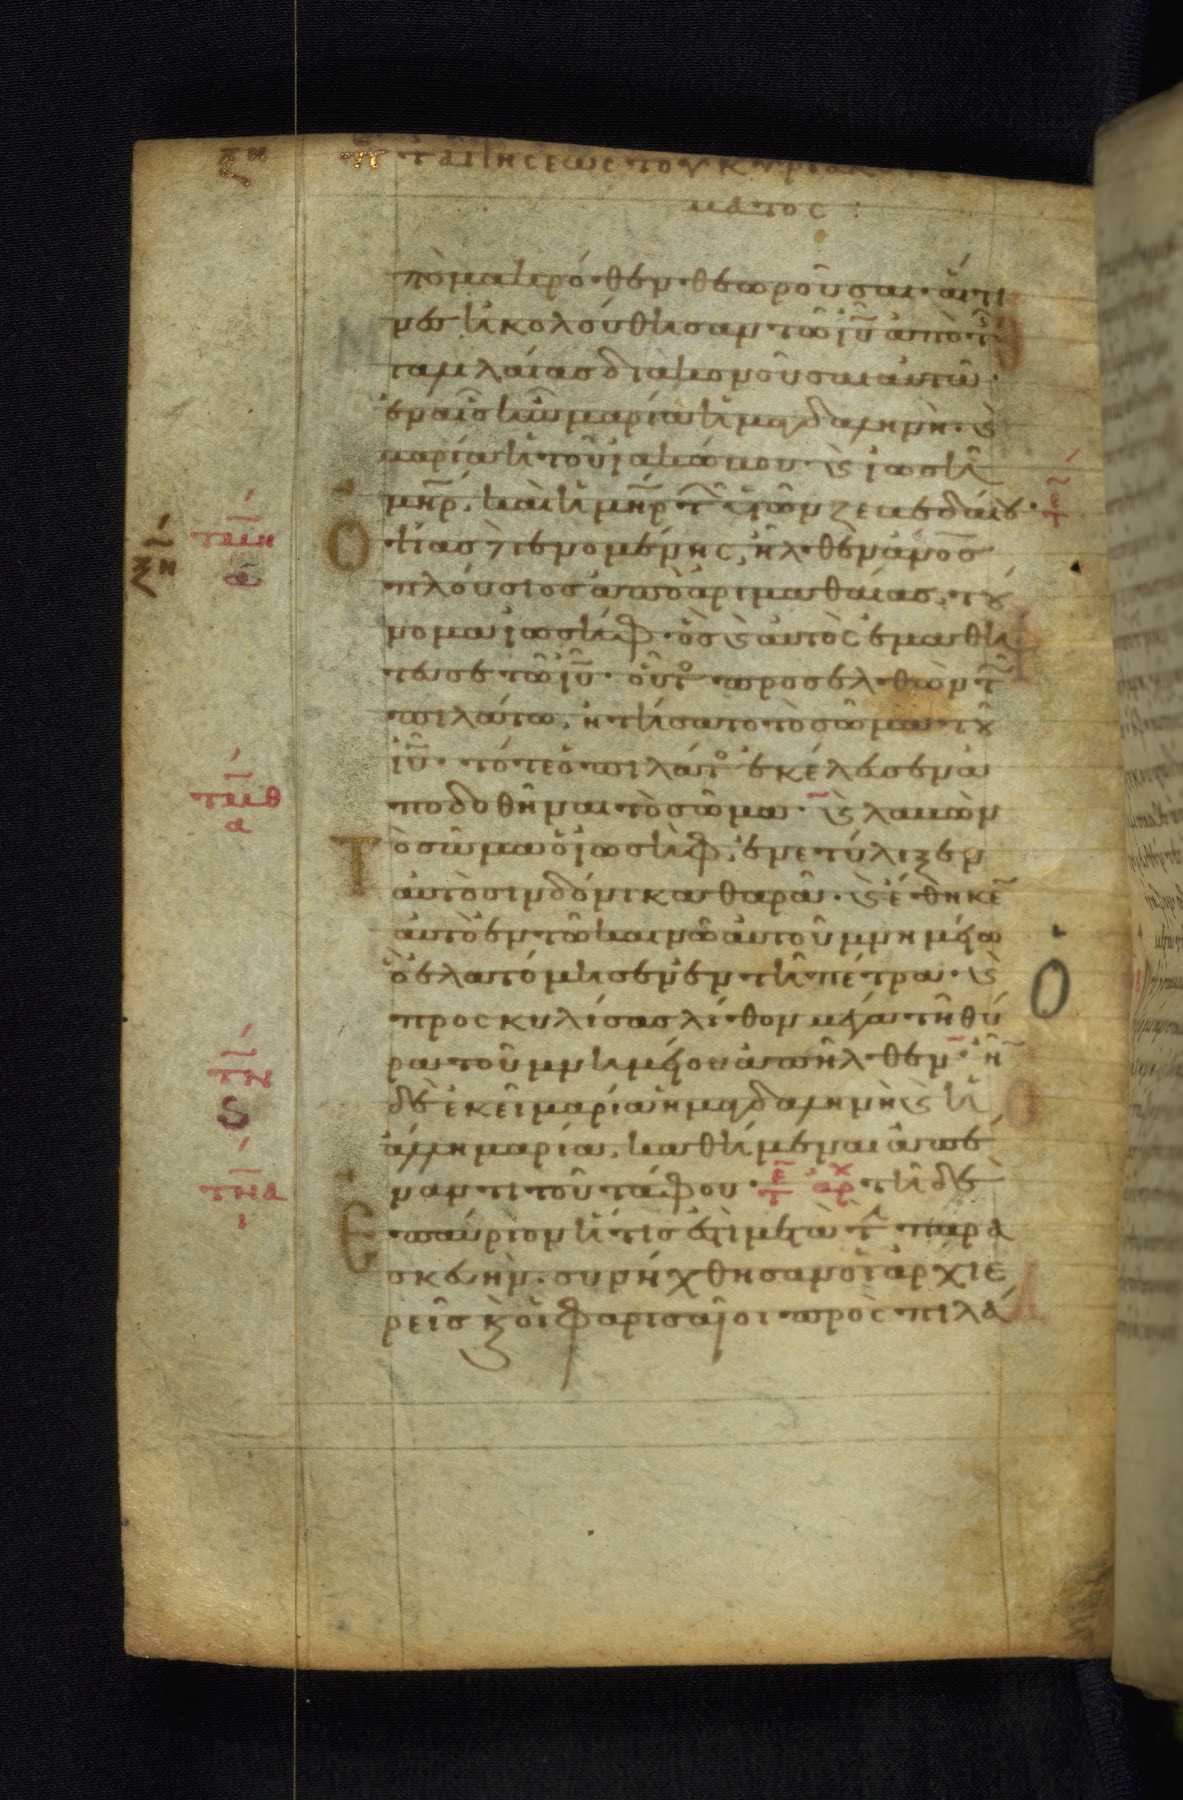 ξη π τ αιτησεως του κυριακου
ματος :
πὸ μακρόθεν θεωροῦσαι· αἵτι
νες ἠκολούθησαν τῶ ιῦ ἀπὸ τ
γαλιλαίας διακονοῦσαι αὐτῶ·
ἐν αἷς ἦν μαρία ἡ μαγδαληνὴ· ϗ
μαρία ἡ τοῦ ἰακώβου ϗ ἰωσῆ
μηρ, καὶ ἡ μηρ τ υἱῶν ζεβεδαίου·
Ὀψίας γενομένης, ἦλθεν ἄνος
πλούσιος ἀπὸ ἀριμαθαίας, τοὔ
νομα ἰωσὴφ· ὃς ϗ αὐτὸς ἐμαθή
τευσε τῶ ιῦ· οὗτος προσελθὼν τ
πιλάτω, ἠτήσατο τὸ σῶμα τοῦ
ιῦ· τότε ὁ πιλάτος ἐκέλευσεν ἀ
ποδοθῆναι τὸ σῶμα· ϗ λαβὼν
Τὸ σῶμα ὁ ἰωσὴφ, ἐνετύλιξεν
αὐτὸ σινδόνι καθαρᾶ· ϗ ἔθηκε
αὐτὸ ἐν τῶ καινῶ αὐτοῦ μνημείω
ὃ ἐλατόμησεν ἐν τῆ πέτρα· ϗ
προσκυλίσας λίθον μέγαν τῆ θύ
ρα τοῦ μνημείου ἀπῆλθεν· ἦ
δὲ ἐκεῖ μαρία ἡ μαγδαληνὴ ϗ ἡ
ἄλλη μαρία, καθήμεναι ἀπέ
ναντι τοῦ τάφου· τε αρχ τῆ δὲ
Ἐπαύριον ἥτις ἐστὶ μετὰ τ παρα
σκευὴν· συνήχθησαν οἱ ἀρχιε
ρεῖς κ οἱ φαρισαῖοι πρὸς πιλά